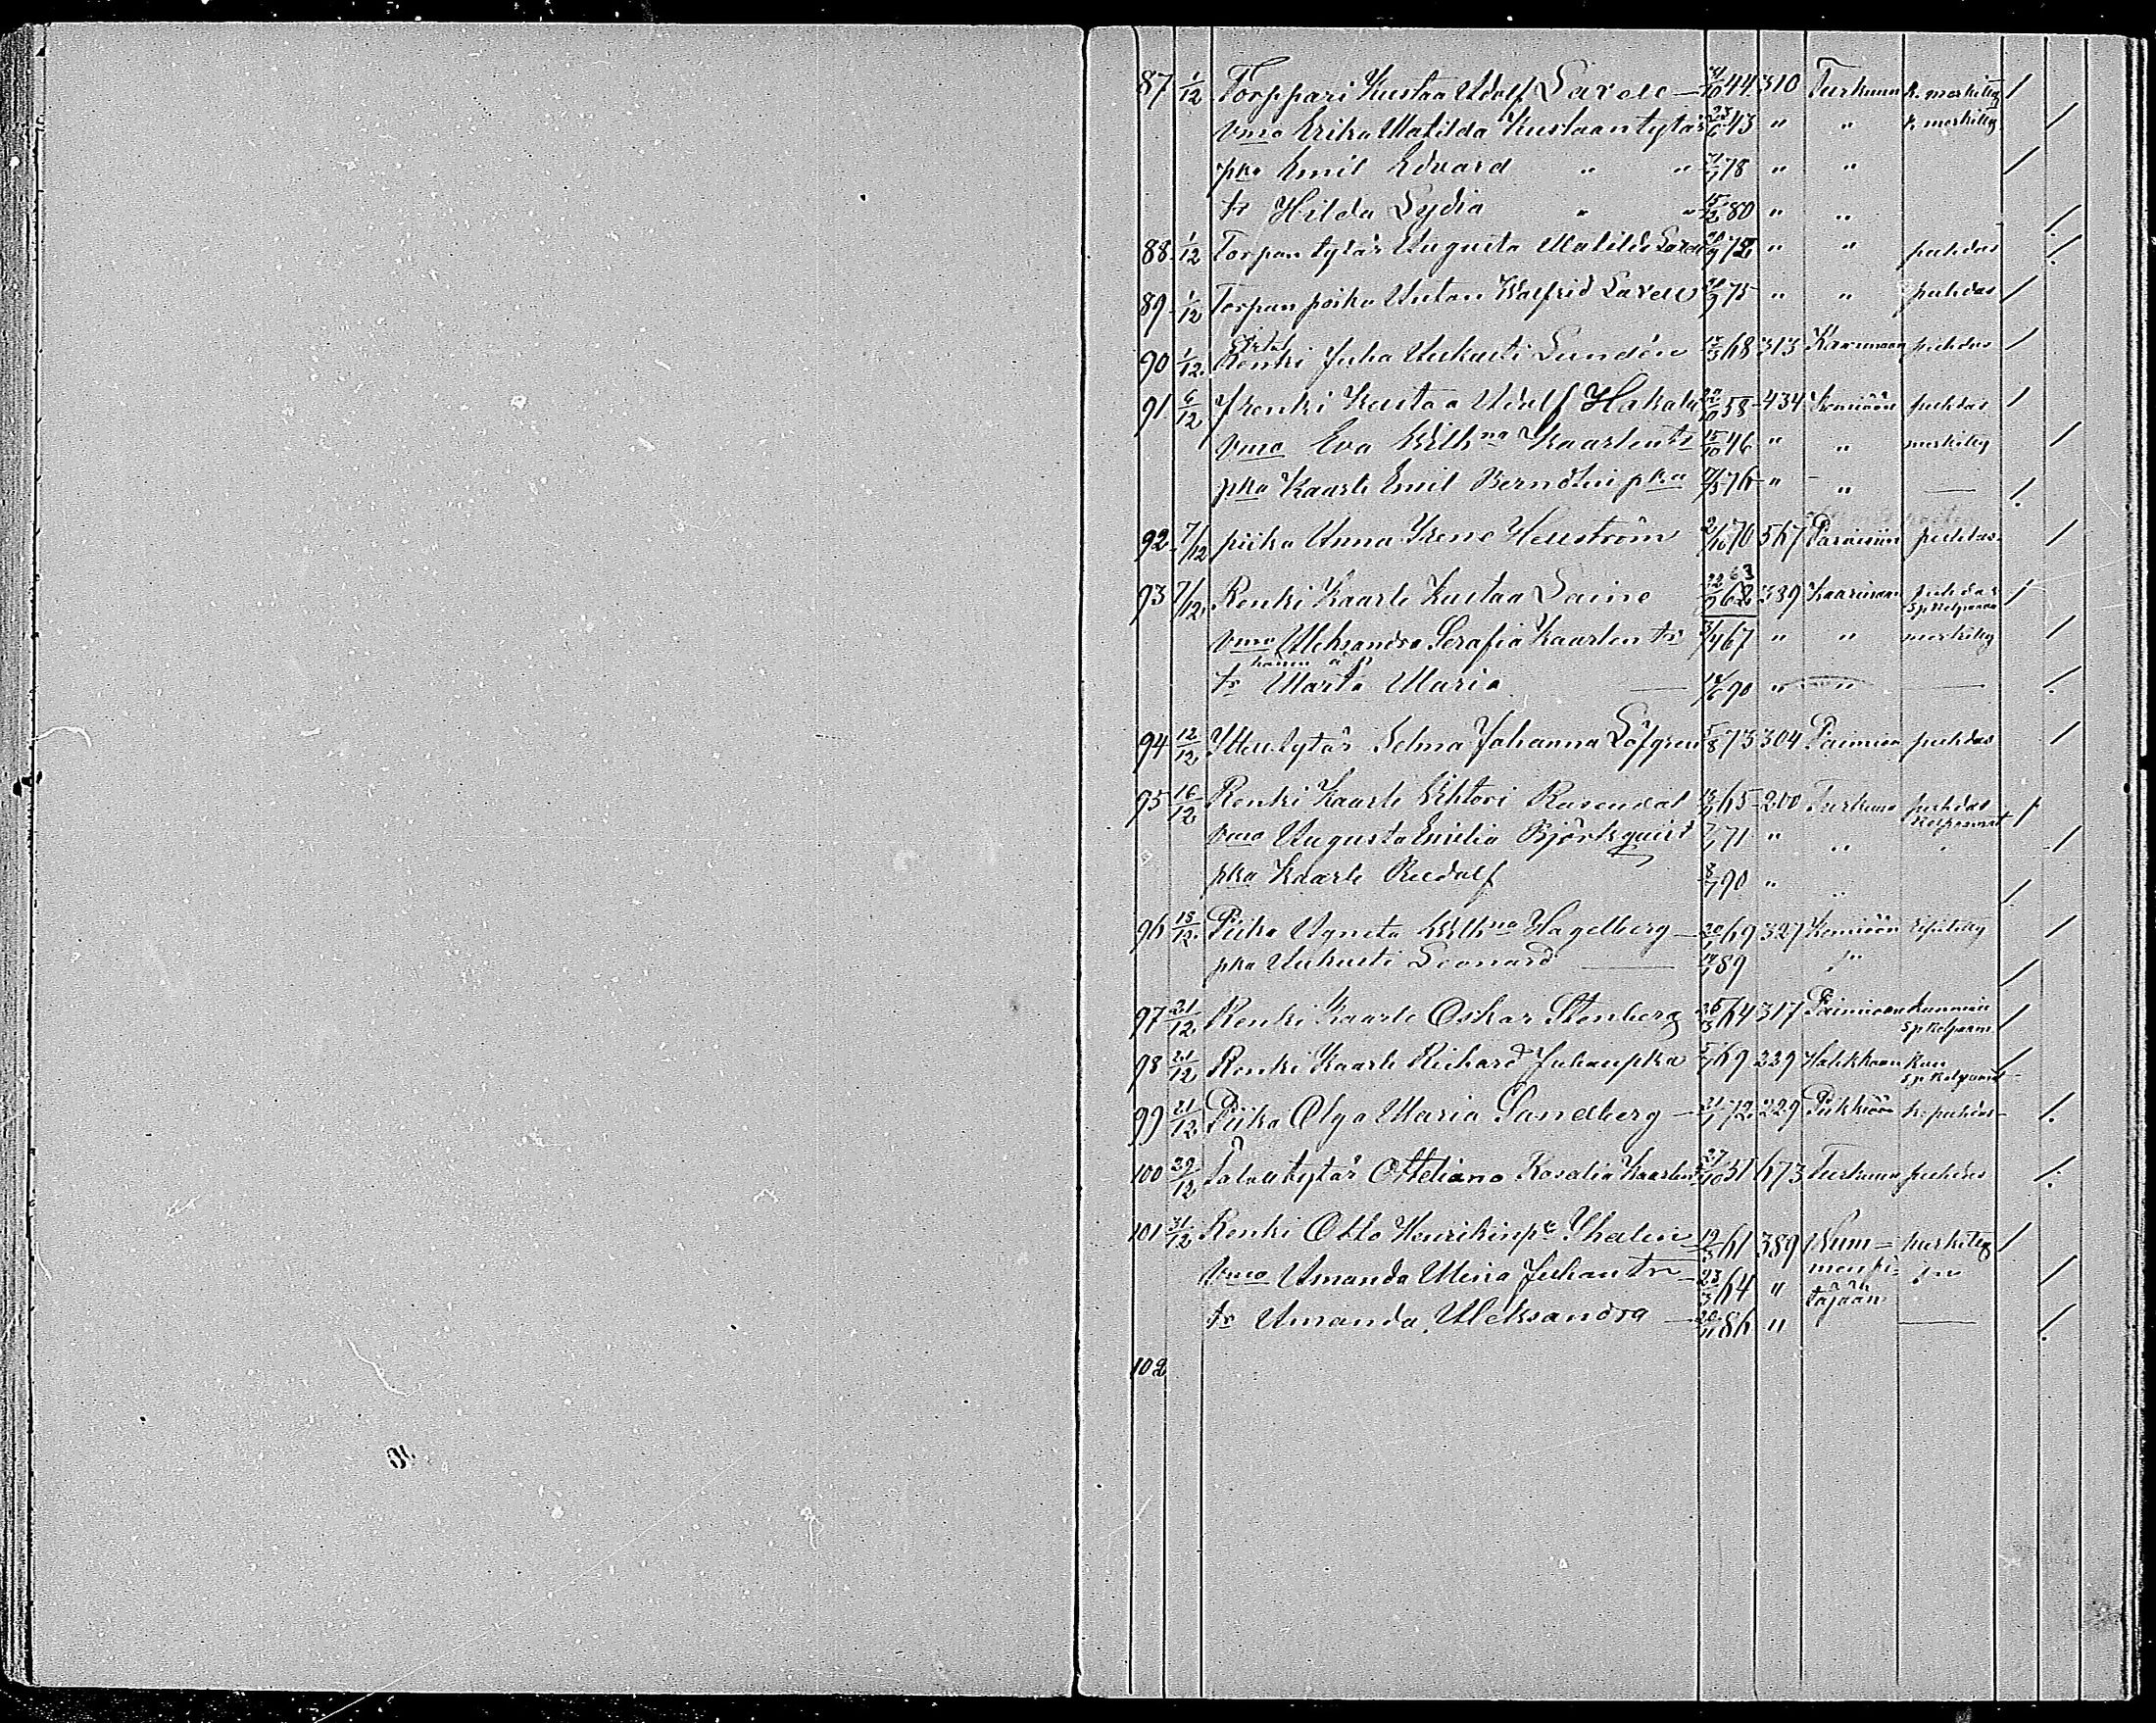 87 1/12 Torppari Kustaa Adolf Lavell 44 310 Turkuun k. merkitty /
vmo Erika Matilda Kustaantytär 43 " " k. merkitty /
pka Emil Edvard " " 78 " " /
tr Hilda Lydia " " 15/12 80 " " /
88 1/12 Torpantytär Augusta Matilda Lavell 72 " " puhdas /
89 1/12 Torpanpoika Antan Walfrid Lavell 75 " " puhdas /
90 1/12 Renki Juho Aukusti Lundén 68 313 Kaarinaan puhdas /
91 6/12 Renki Kustaa Adolf Hakala 58 434 Kemiöön puhdas /
vmo Eva Wilhna Kaarlentr 15/10 46 " " merkitty /
pka Kaarle Emil Berndtin pka 76 " " — /
92 7/12 piika Anna Irene Hellström 2/10 70 567 Paraisiin puhdas /
93 7/12 Renki Kaarle Kustaa Laine 62 63 339 Kaarinaan puhdas /
vmo Aleksandra Serafia Kaarlen tr 67 " " merkitty /
tr Marta Maria — 90 " " — /
94 12/12 Itell.tytär Selma Johanna Löfgren 5/8 73 304 Paimioon puhdas /
95 16/12 Renki Kaarle Wihtori Rosendal 65 200 Turkuun puhdas /
vmo Augusta Emilia Björkquist 71 " " /
pka Kaarle Rudolf 90 " " /
96 18/12 Piika Agneta Wilhna Hagelberg 69 327 Kemiöön /
pka Aukusti Leonard — 89 " /
97 21/12 Renki Kaarle Oskar Stenberg 64 317 Paimioon /
98 21/12 Renki Kaarle Richard Juhanpka 69 229 Halikkoon /
99 21/12 Piika Olga Maria Sandberg 72 229 Piikkiöön k. puhdas /
100 29/12 Talontytär Otteliana Rosalia Kaarlen 27/10 51 673 Turkuun puhdas /
101 31/12 Renki Otto Henrikinp. Thalin 61 389 Num= merkitty /
vmo Amanda Miina Juhantr 23/3 64 " menpi= /
tr Amanda Aleksandra 86 " täjään — /
102